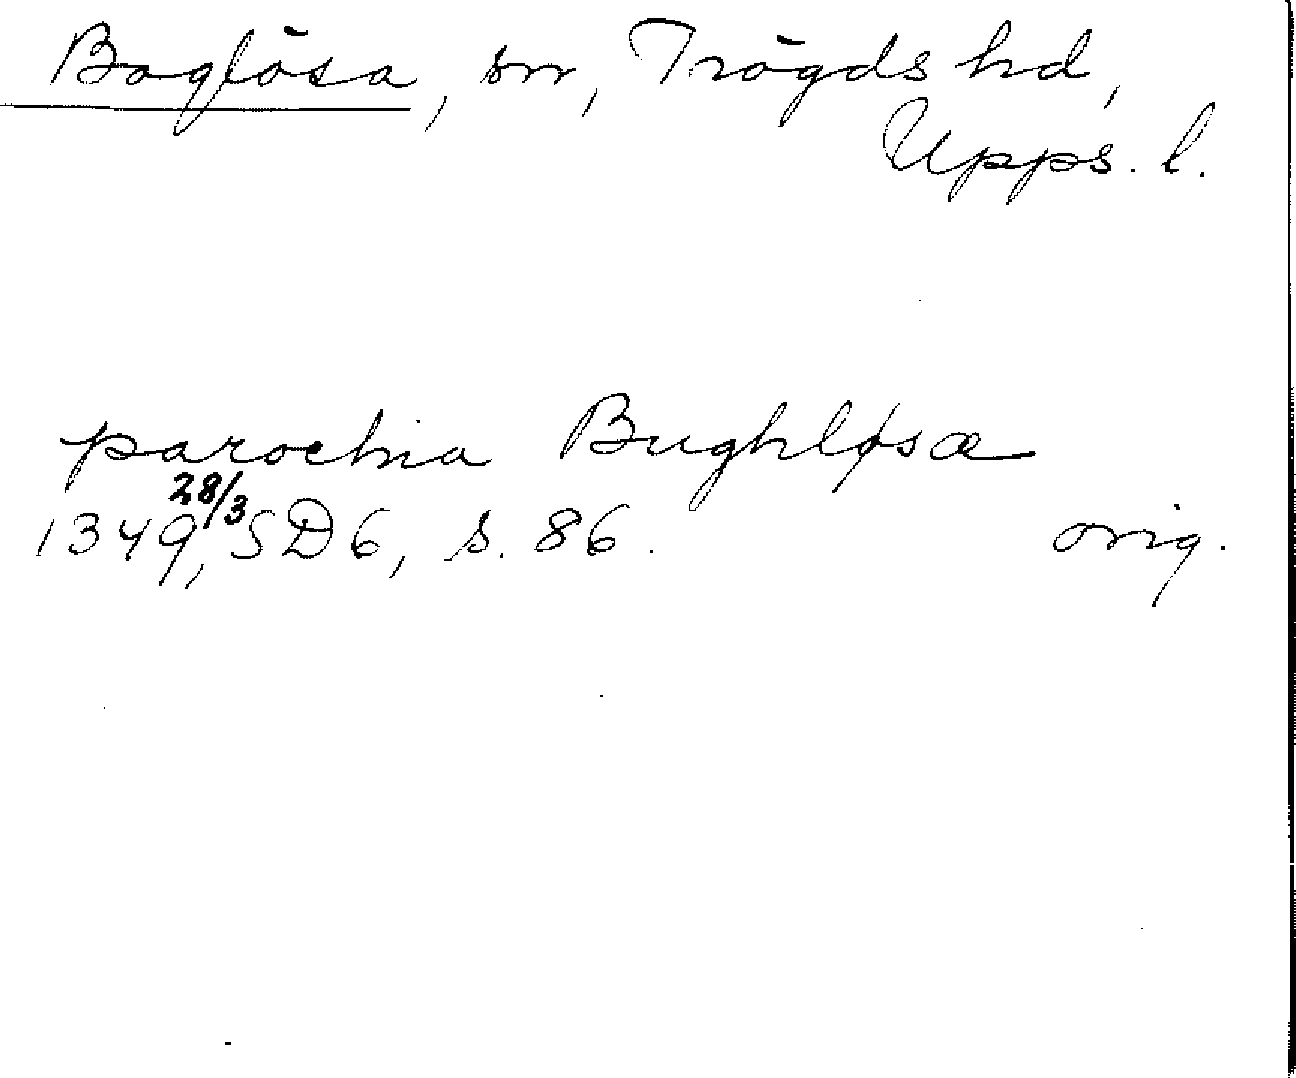 Boglösa, sn, Trögds hd,
Upps. l.
parochia Bughløsæ
1349 28/3, SD 6, s. 86.
orig.